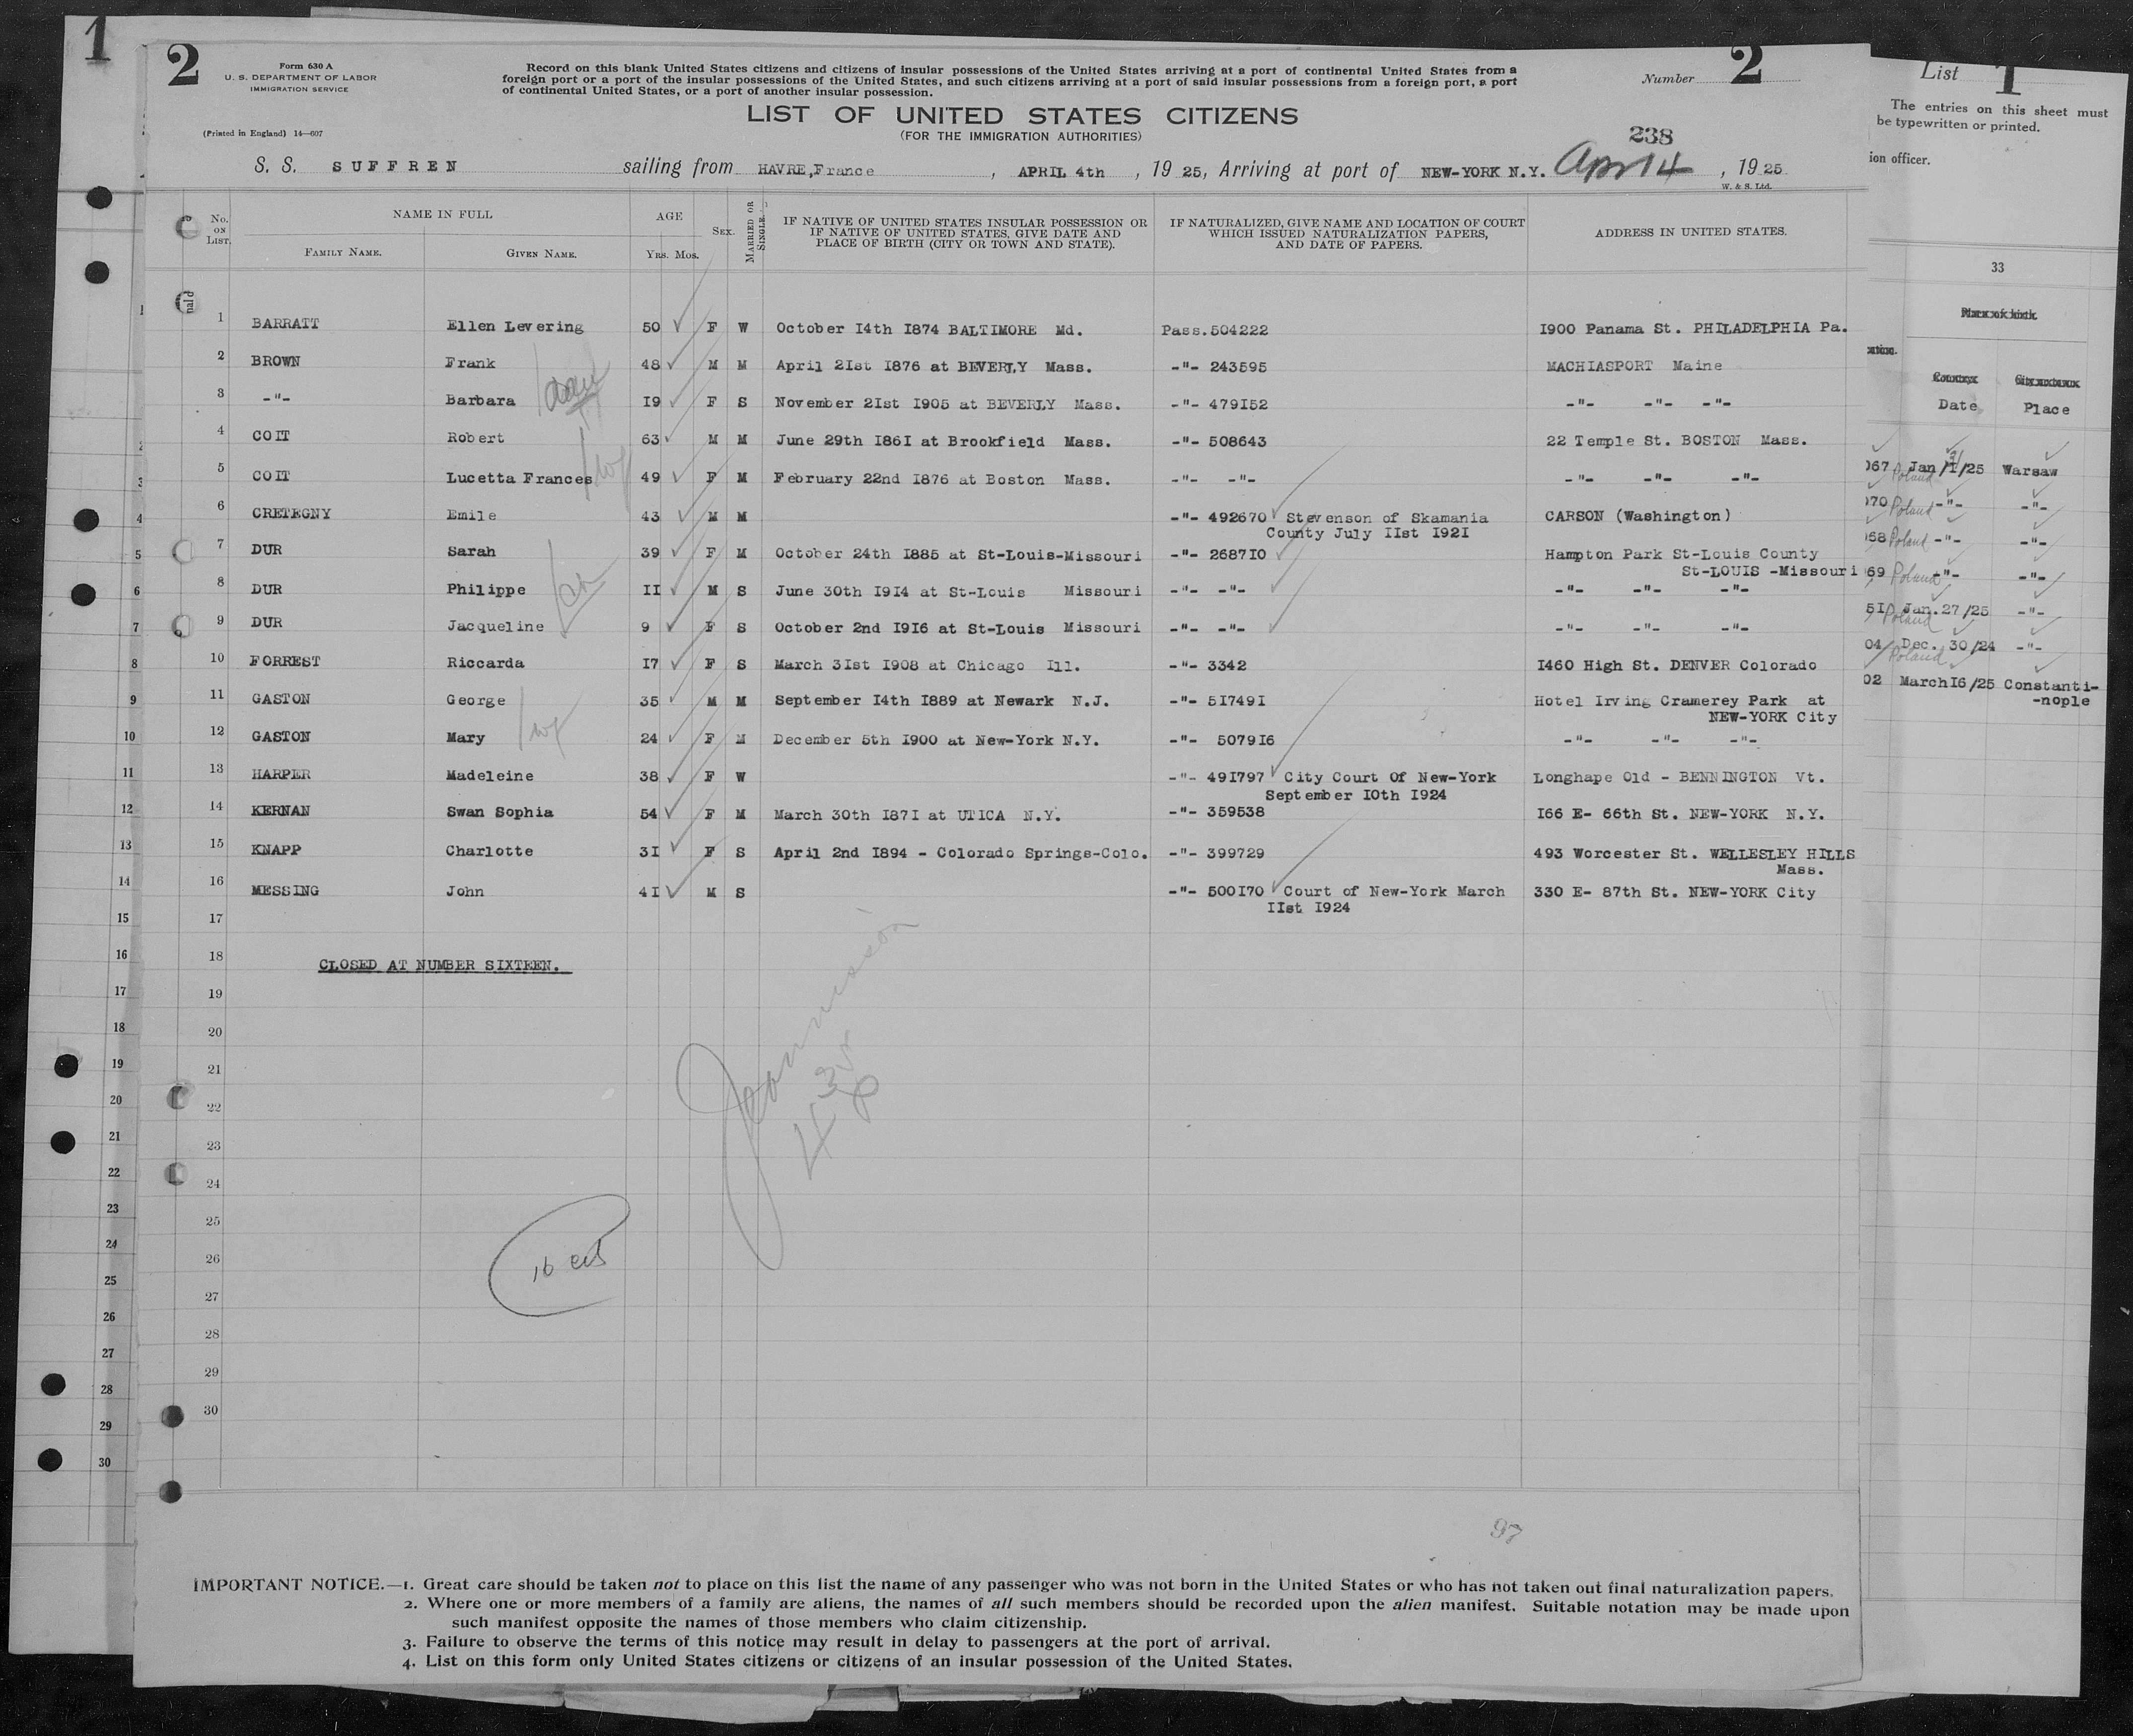 1
2
Form 630 A
U. S. DEPARTMENT OF LABOR
IMMIGRATION SERVICE
(Printed in England) 14—607
Record on this blank United States citizens and citizens of insular possessions of the United States arriving at a port of continental United States from a
foreign port or a port of the insular possessions of the United States, and such citizens arriving at a port of said insular possessions from a foreign port, a port
of continental United States, or a port of another insular possession.
Number 2
LIST OF UNITED STATES CITIZENS
(FOR THE IMMIGRATION AUTHORITIES)
238
S. S. SUFFREN sailing from HAVRE,France , APRIL 4th , 19 25, Arriving at port of NEW-YORK N.Y. Apr 14 , 19 25.
W. & S. Ltd.
No. ON LIST.
NAME IN FULL
FAMILY NAME. GIVEN NAME.
AGE
YRS. MOS.
SEX.
MARRIED OR SINGLE.
IF NATIVE OF UNITED STATES INSULAR POSSESSION OR
IF NATIVE OF UNITED STATES, GIVE DATE AND
PLACE OF BIRTH (CITY OR TOWN AND STATE).
IF NATURALIZED, GIVE NAME AND LOCATION OF COURT
WHICH ISSUED NATURALIZATION PAPERS,
AND DATE OF PAPERS.
ADDRESS IN UNITED STATES.
1 BARRATT Ellen Levering 50 F W October I4th I874 BALTIMORE Md. Pass.504222 I900 Panama St. PHILADELPHIA Pa.
2 BROWN Frank 48 M M April 2Ist I876 at BEVERLY Mass. -"- 243595 MACHIASPORT Maine
3 -"- Barbara I9 F S November 2Ist I905 at BEVERLY Mass. -"- 479I52 -"- -"- -"-
4 COIT Robert 63 M M June 29th I86I at Brookfield Mass. -"- 508643 22 Temple St. BOSTON Mass.
5 COIT Lucetta Frances 49 F M February 22nd I876 at Boston Mass. -"- -"- -"- -"- -"-
6 CRETEGNY Emile 43 M M -"- 492670 Stevenson of Skamania CARSON (Washington)
County July IIst I92I
7 DUR Sarah 39 F M October 24th I885 at St-Louis-Missouri -"- 2687I0 Hampton Park St-Louis County
St-LOUIS -Missouri
8 DUR Philippe II M S June 30th I9I4 at St-Louis Missouri -"- -"- -"- -"- -"-
9 DUR Jacqueline 9 F S October 2nd I9I6 at St-Louis Missouri -"- -"- -"- -"- -"-
10 FORREST Riccarda I7 F S March 3Ist I908 at Chicago Ill. -"- 3342 I460 High St. DENVER Colorado
11 GASTON George 35 M M September I4th I889 at Newark N.J. -"- 5I749I Hotel Irving Cramerey Park at
NEW-YORK City
12 GASTON Mary 24 F M December 5th I900 at New-York N.Y. -"- 5079I6 -"- -"- -"-
13 HARPER Madeleine 38 F W -"- 49I797 City Court Of New-York Longhape Old - BENNINGTON Vt.
September I0th I924
14 KERNAN Swan Sophia 54 F M March 30th I87I at UTICA N.Y. -"- 359538 I66 E- 66th St. NEW-YORK N.Y.
15 KNAPP Charlotte 3I F S April 2nd I894 - Colorado Springs-Colo. -"- 399729 493 Worcester St. WELLESLEY HILLS
Mass.
16 MESSING John 4I M S -"- 500I70 Court of New-York March 330 E- 87th St. NEW-YORK City
IIst I924
17
18 CLOSED AT NUMBER SIXTEEN.
19
20
21
22
23
24
25
26
27
28
29
30
wf
wf
4
16 cit
97
IMPORTANT NOTICE.—1. Great care should be taken not to place on this list the name of any passenger who was not born in the United States or who has not taken out final naturalization papers.
2. Where one or more members of a family are aliens, the names of all such members should be recorded upon the alien manifest. Suitable notation may be made upon
such manifest opposite the names of those members who claim citizenship.
3. Failure to observe the terms of this notice may result in delay to passengers at the port of arrival.
4. List on this form only United States citizens or citizens of an insular possession of the United States.
4
5
6
7
8
9
10
11
12
13
14
15
16
17
18
19
20
21
22
23
24
25
26
27
28
29
30
List 1
The entries on this sheet must
be typewritten or printed.
ion officer.
33
Place of birth.
Country. City or town.
Date Place
067 Jan/ 31/25 Warsaw
Poland
070 Poland -"- -"-
068 Poland -"- -"-
69 Poland -"- -"-
5I0 Jan.27/25 -"-
Poland
04 Dec. 30/24 -"-
Poland
02 MarchI6/25 Constanti-
-nople